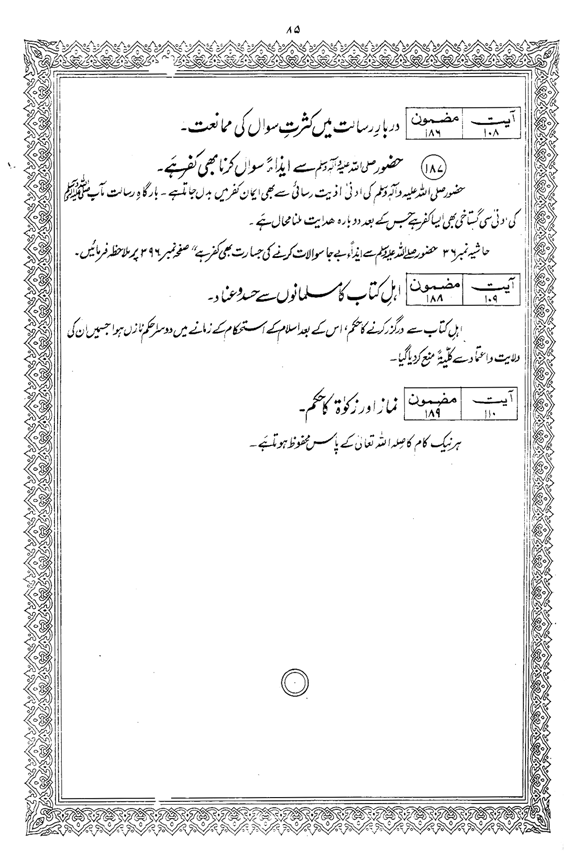 ۸۵
آیت ۱۰۸ مضمون ۱۸۶ دربارِ رسالت میں کثرتِ سوال کی ممانعت۔
۱۸۷ حضور صلی اللہ علیہ وآلہ وسلم سے ایذاءً سوال کرنا بھی کفر ہے۔
حضور صلی اللہ علیہ وآلہ وسلم کی ادنیٰ اذیت رسائی سے بھی ایمان کفر میں بدل جاتا ہے۔ بارگاہِ رسالت مآب ﷺ
کی ادنیٰ سی گستاخی بھی ایسا کفر ہے جس کے بعد دوبارہ ھدایت ملنا محال ہے۔
حاشیہ نمبر ۲۶ حضور صلی اللہ علیہ وسلم سے ایذاءً بے جا سوالات کرنے کی جسارت بھی کفر ہے" صفحہ نمبر ۲۹۶ پر ملاحظہ فرمائیں۔
آیت ۱۰۹ مضمون ۱۸۸ اہلِ کتاب کا مسلمانوں سے حسد و عناد۔
اہلِ کتاب سے درگزر کرنے کا حکم، اس کے بعد اسلام کے استحکام کے زمانے میں دوسرا حکم نازل ہوا جسمیں ان کی
ولایت و اعتماد سے کلیۃً منع کر دیا گیا۔
آیت ۱۱۰ مضمون ۱۸۹ نماز اور زکوٰۃ کا حکم۔
ہر نیک کام کا صلہ اللہ تعالیٰ کے پاس محفوظ ہوتا ہے۔